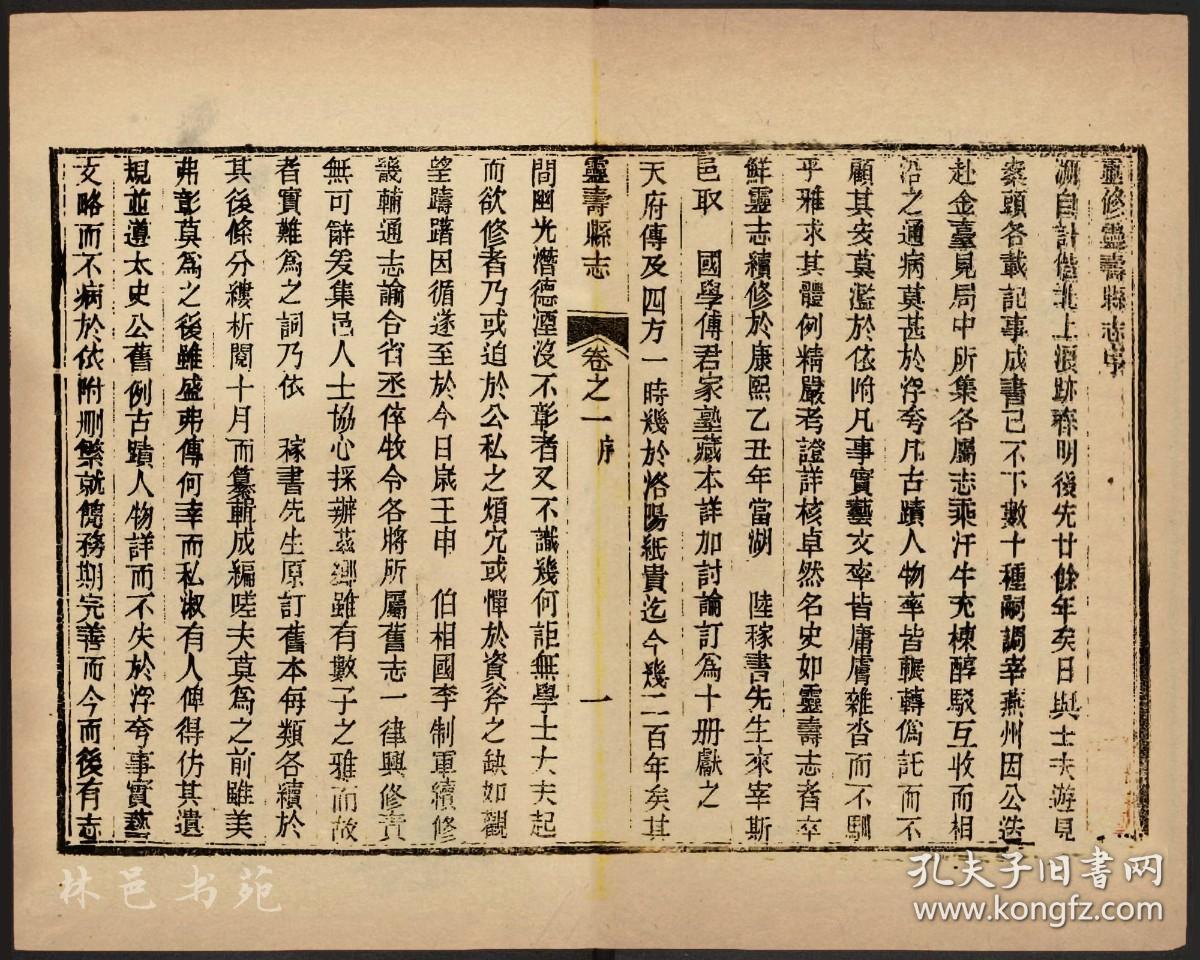 重修靈壽縣志序
溯自計偕北上浪跡春明後先廿餘年矣日與士夫遊見
案頭各載記事成書已不下數十種嗣調宰燕州因公迭
赴金臺見局中所集各屬志乘汗牛充棟醇駁互收而相
沿之通病莫甚於浮夸凡古蹟人物率皆輾轉偽託而不
顧其安莫濫於依附凡事實藝文率皆庸膚雜沓而不馴
乎雅求其體例精嚴考證詳核卓然名史如靈壽志者卒
鮮靈志續修於康熙乙丑年當湖 陸稼書先生來宰斯
邑取 國學傅君家塾藏本詳加討論訂為十册獻之
天府傳及四方一時幾於洛陽紙貴迄今幾二百年矣其
靈壽縣志 卷之一 序 一
間幽光潛德湮沒不彰者又不識幾何詎無學士大夫起
而欲修者乃或迫於公私之煩宂或憚於資斧之缺如觀
望躊躇因循遂至於今日歲壬申 伯相國李制軍續修
畿輔通志諭合省丞倅牧令各將所屬舊志一律興修責
無可辭爰集邑人士協心採辦茲鄉雖有數子之雅而故
者實難為之詞乃依 稼書先生原訂舊本每類各續於
其後條分縷析閱十月而纂輯成編嗟夫莫為之前雖美
弗彰莫為之後雖盛弗傳何幸而私淑有人俾得仿其遺
規並遵太史公舊例古蹟人物詳而不失於浮夸事實藝
文略而不病於依附刪繁就簡務期完善而今而後有志
林邑书苑
孔夫子旧书网
www.kongfz.com